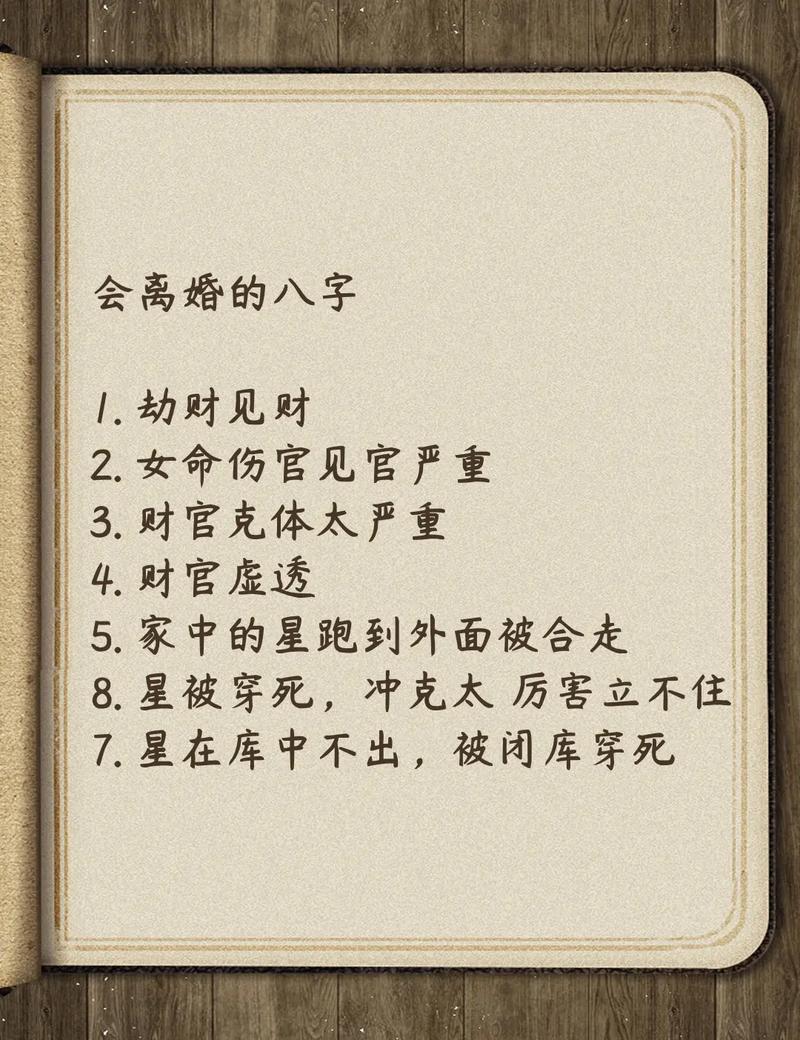 会离婚的八字
1. 劫财见财
2. 女命伤官见官严重
3. 财官克体太严重
4. 财官虚透
5. 家中的星跑到外面被合走
8. 星被穿死，冲克太 厉害立不住
7. 星在库中不出，被闭库穿死